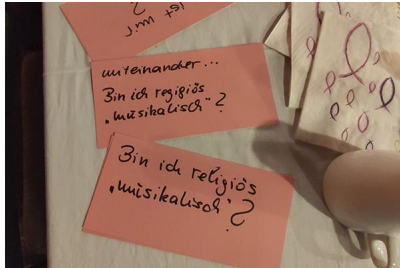 ist mir
?
miteinander...
Bin ich regigiös
„musikalisch"?
Bin ich religiös
„musikalisch"?